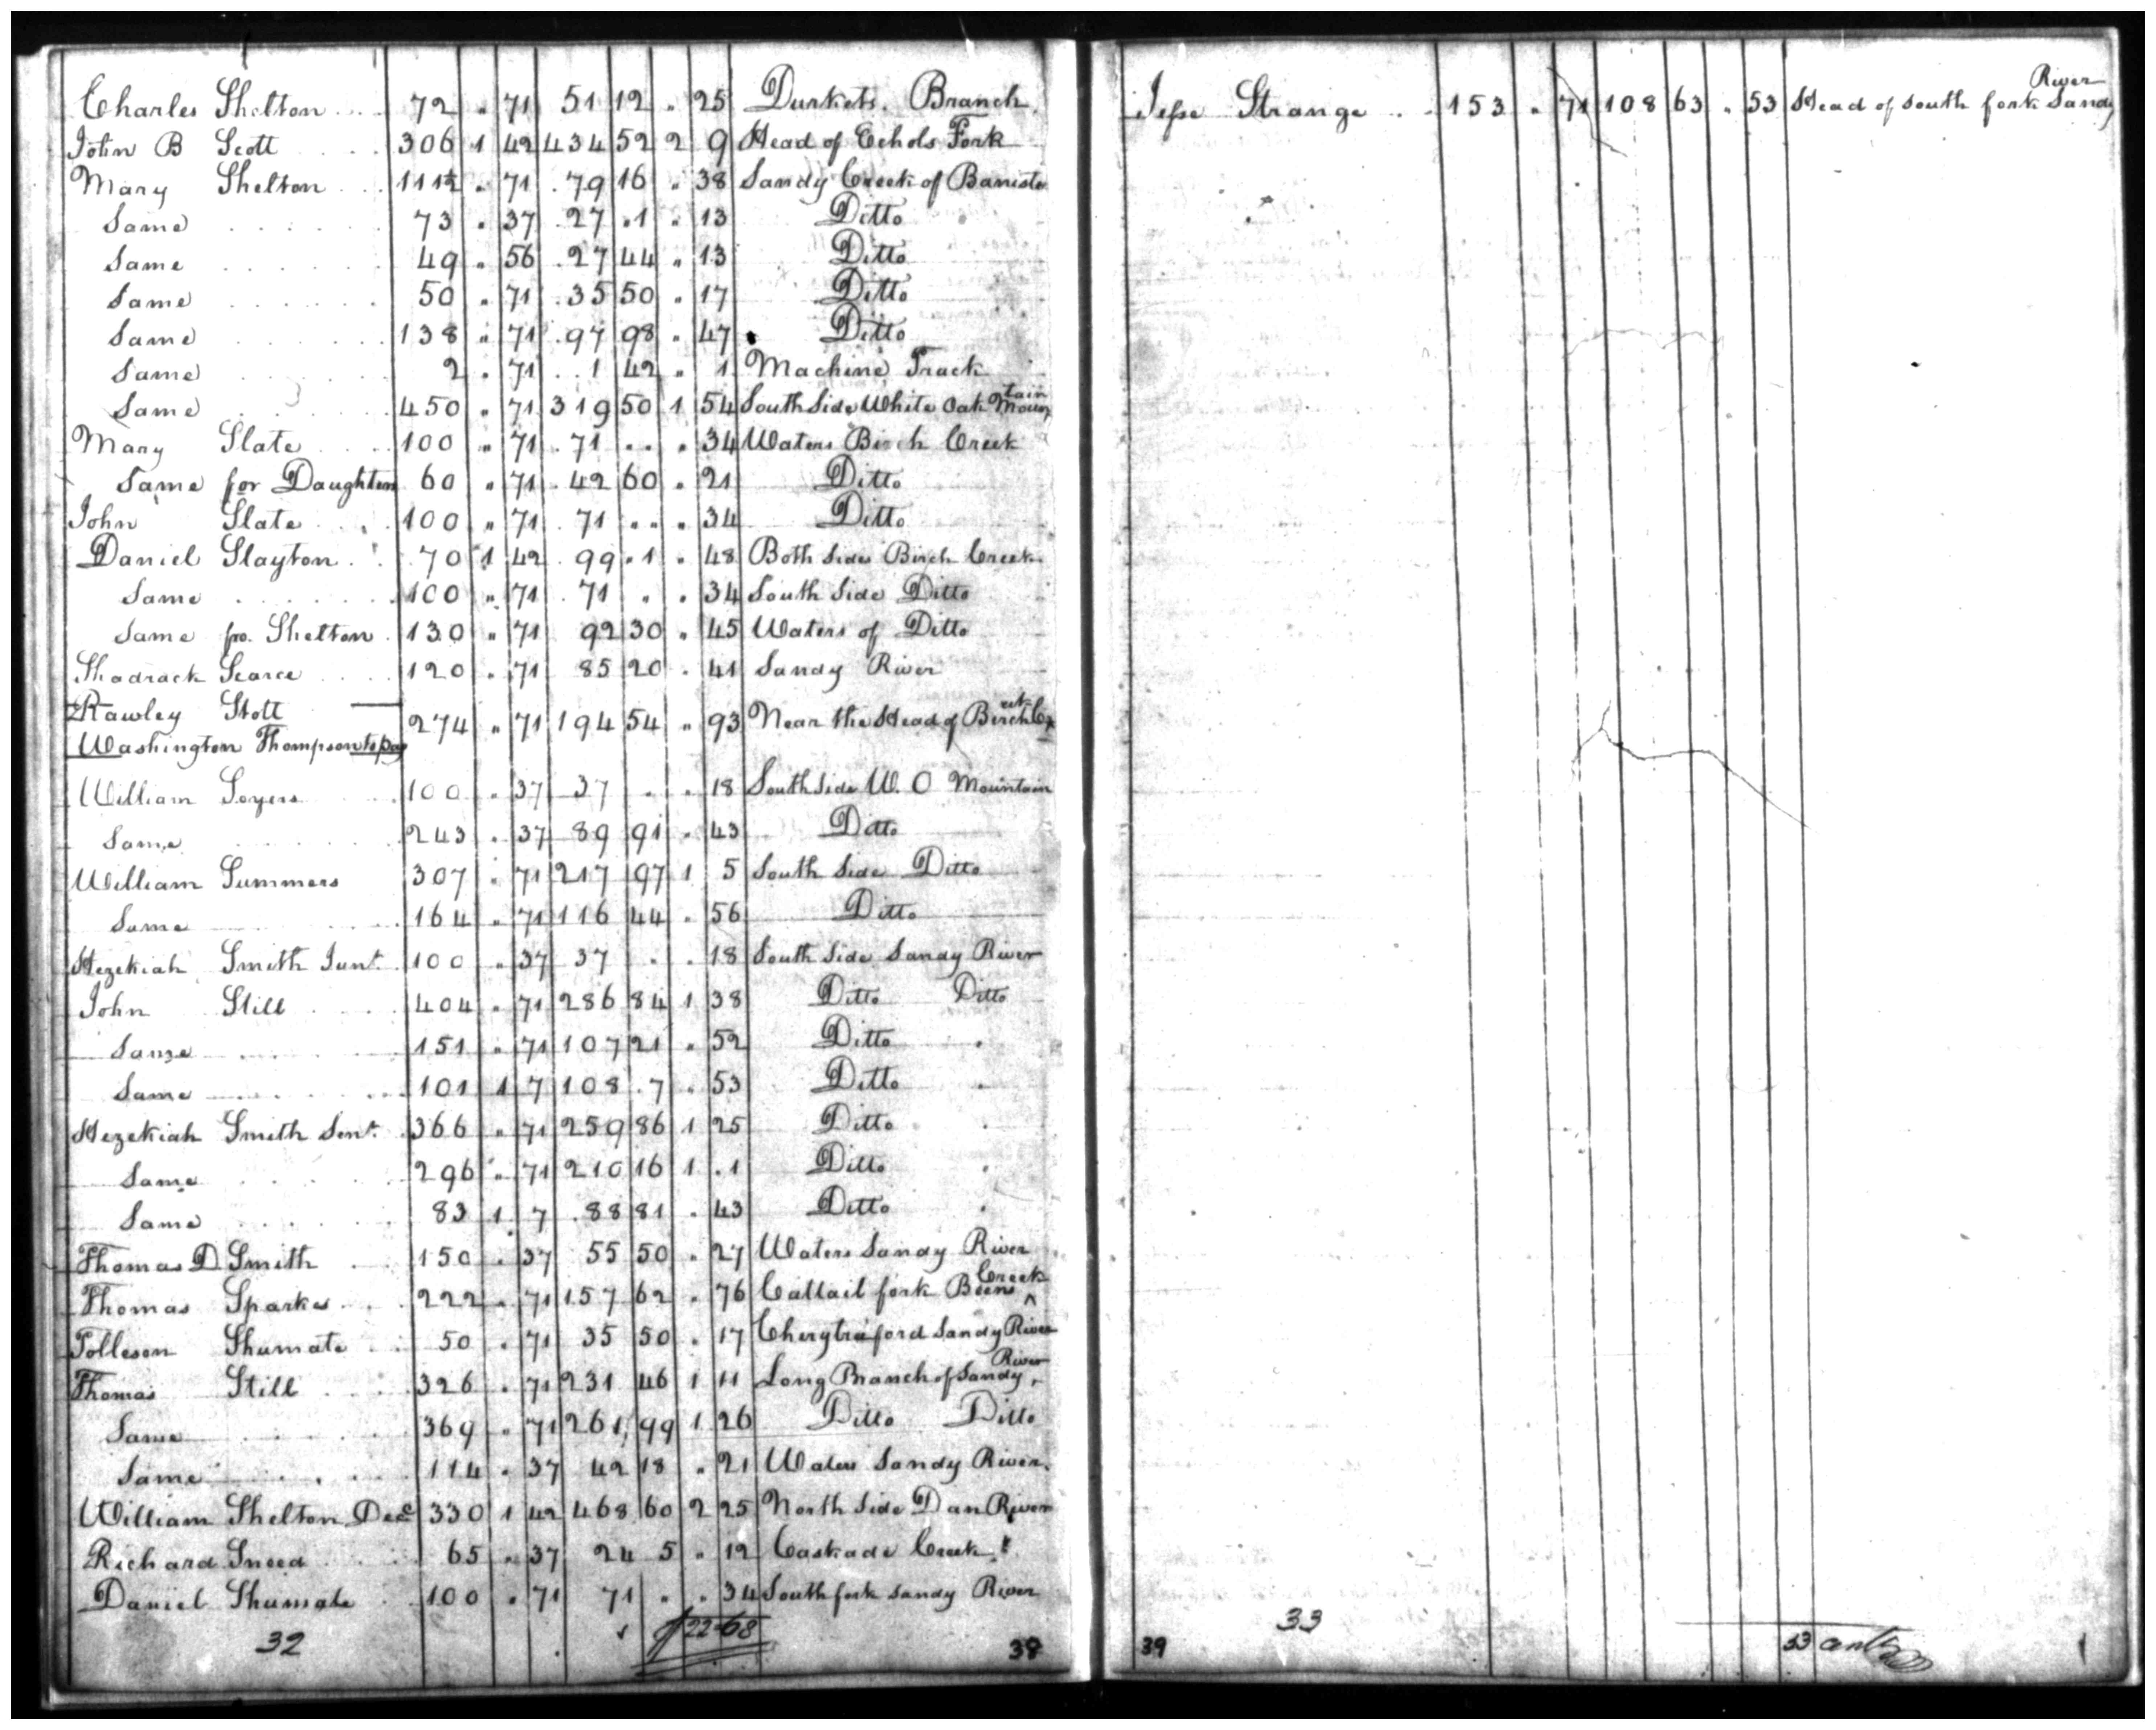 Charles Shelton . . . 72 " 71 51 12 " 25 Durkets. Branch
John B Scott . . . 306 1 42 434 52 2 9 Head of Echols Fork
Mary Shelton . . . 111½ " 71 . 79 16 " 38 Sandy Creek of Baniste
Same . . . . . . 73 " 37 . 27 . 1 " 13 Ditto
Same . . . . . . 49 " 56 . 27 44 " 13 Ditto
Same . . . . . . 50 " 71 . 35 50 " 17 Ditto
Same . . . . . . 138 " 71 . 97 98 " 47 Ditto
Same . . . . . . 2 " 71 . . 1 42 " 1 Machine Track
Same . . . . . . 450 " 71 319 50 1 54 South Side White Oak Mountain
Mary Slate . . . 100 " 71 . 71 . . " 34 Waters Birch Creek
Same for Daughters 60 " 71 . 42 60 " 21 Ditto
John Slate . . . 100 " 71 . 71 . . " 34 Ditto
Daniel Slayton . . 70 1 42 . 99 . 1 " 48 Both Sides Birch Creek
Same . . . . . . 100 " 71 . 71 " " 34 South Side Ditto
Same fro. Shelton . 130 " 71 92 30 " 45 Waters of Ditto
Shadrack Scarce . . . 120 " 71 85 20 " 41 Sandy River
Rawley Stott
Washington Thompson to pay 274 " 71 194 54 " 93 Near the Head of Birch Creek
William Soyers . . 100 " 37 37 " " 18 South Side W. O Mountain
Same . . . . . . 243 " 37 89 91 " 43 Ditto
William Summers 307 " 71 217 97 1 5 South Side Ditto
Same . . . . . . 164 " 71 116 44 " 56 Ditto
Hezekiah Smith Junr. 100 " 37 37 " " 18 South Side Sandy River
John Still . . . . 404 " 71 286 84 1 38 Ditto Ditto
Same . . . . . . 151 " 71 107 21 " 52 Ditto "
Same . . . . . . 101 1 7 108 . 7 " 53 Ditto "
Hezekiah Smith Senr. 366 " 71 259 86 1 25 Ditto "
Same . . . . . . 296 " 71 210 16 1 . 1 Ditto "
Same . . . . . . 83 1 7 . 88 81 " 43 Ditto "
Thomas D Smith . . 150 " 37 55 50 " 27 Waters Sandy River
Thomas Sparks . . 222 " 71 157 62 " 76 Cattail fork Beens Creek
Tolleson Shumate . . 50 " 71 35 50 " 17 Cherytreeford Sandy River
Thomas Still . . . 326 " 71 231 46 1 11 Long Branch of Sandy River
Same . . . . . . 369 " 71 261 99 1 26 Ditto Ditto
Same . . . . . . 114 " 37 42 18 " 21 Waters Sandy River
William Shelton Dec 330 1 42 468 60 2 25 North Side Dan River
Richard Sneed . . . 65 " 37 24 5 " 12 Caskade Creek
Daniel Shumate . . 100 " 71 71 " " 34 South fork Sandy River
$22-68
32
38
Jesse Strange . . 153 " 71 108 63 " 53 Head of South fork Sandy River
33
39
53 cents